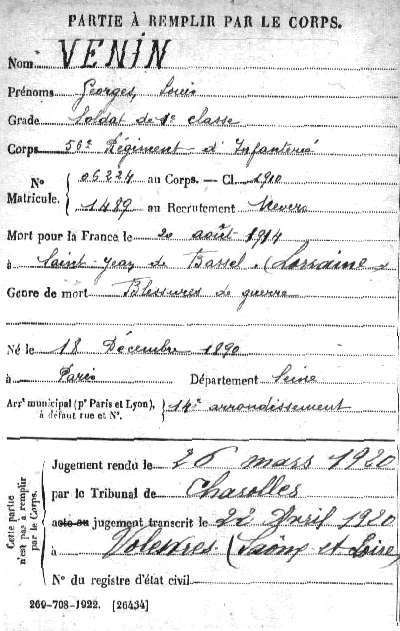 PARTIE À REMPLIR PAR LE CORPS.
Nom VENIN
Prénoms Georges, Louis
Grade Soldat de 1e classe
Corps 56e Régiment d'Infanterie
No Matricule. 06224 au Corps. — Cl. 1910
1489 au Recrutement Nevers
Mort pour la France le 20 août 1914
à Saint-Jean de Bassel. (Lorraine)
Genre de mort Blessures de guerre
Né le 18 Décembre 1890
à Paris Département Seine
Arrt municipal (pr Paris et Lyon), à défaut rue et No. 14e arrondissement
Cette partie n'est pas à remplir par le Corps.
Jugement rendu le 26 mars 1920
par le Tribunal de Charolles
acte ou jugement transcrit le 22 Avril 1920
à (Saône et Loire)
No du registre d'état civil
269-708-1922. [26434]